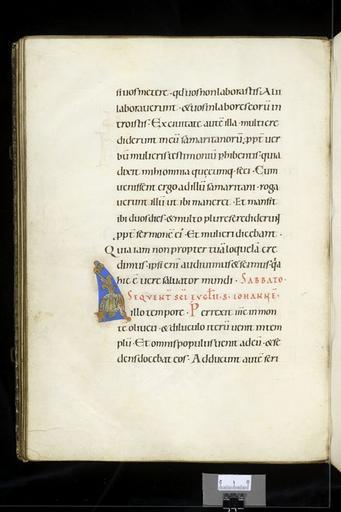 si uos metere · qđ uos non laborastis. Alii
laborauerunt · & uos in labores eorū in
troistis. Ex ciuitate autē illa · multi cre
diderunt in eū samaritanorū, ppt̄ uer
bū mulieris testimoniū phibentis · quia
dixit mihi omnia quęcumq· feci. Cum
uenissent ergo ad illū samaritani · roga
uerunt illū ut ibi maneret. Et mansit
ibi duos dies · & multo plures crediderunt
ppt̄ sermonē ei'. Et mulieri dicebant ·
Quia iam non propter tuā loquelā cre
dimus · ipsi eni audiuimus & scimus qa
hic ē uere saluator mundi · SABBATO ·
SEQUENT SCI EUGLII · S · IOHANNE ·
illo tempore · Perrexit ihc in mon
tē oliueti · & diluculo iterū uenit in tem
plū · Et omnis populus uenit ad eū · & se
dens docebat eos · Adducunt autē scri